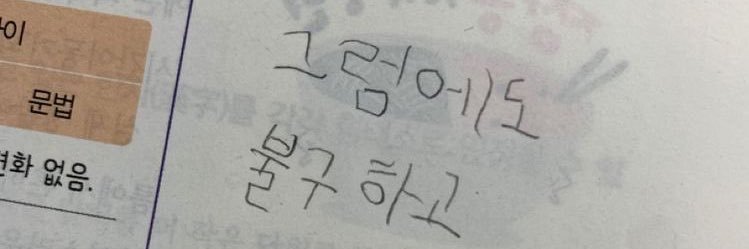 이
문법
변화 없음.
그럼에도
불구하고